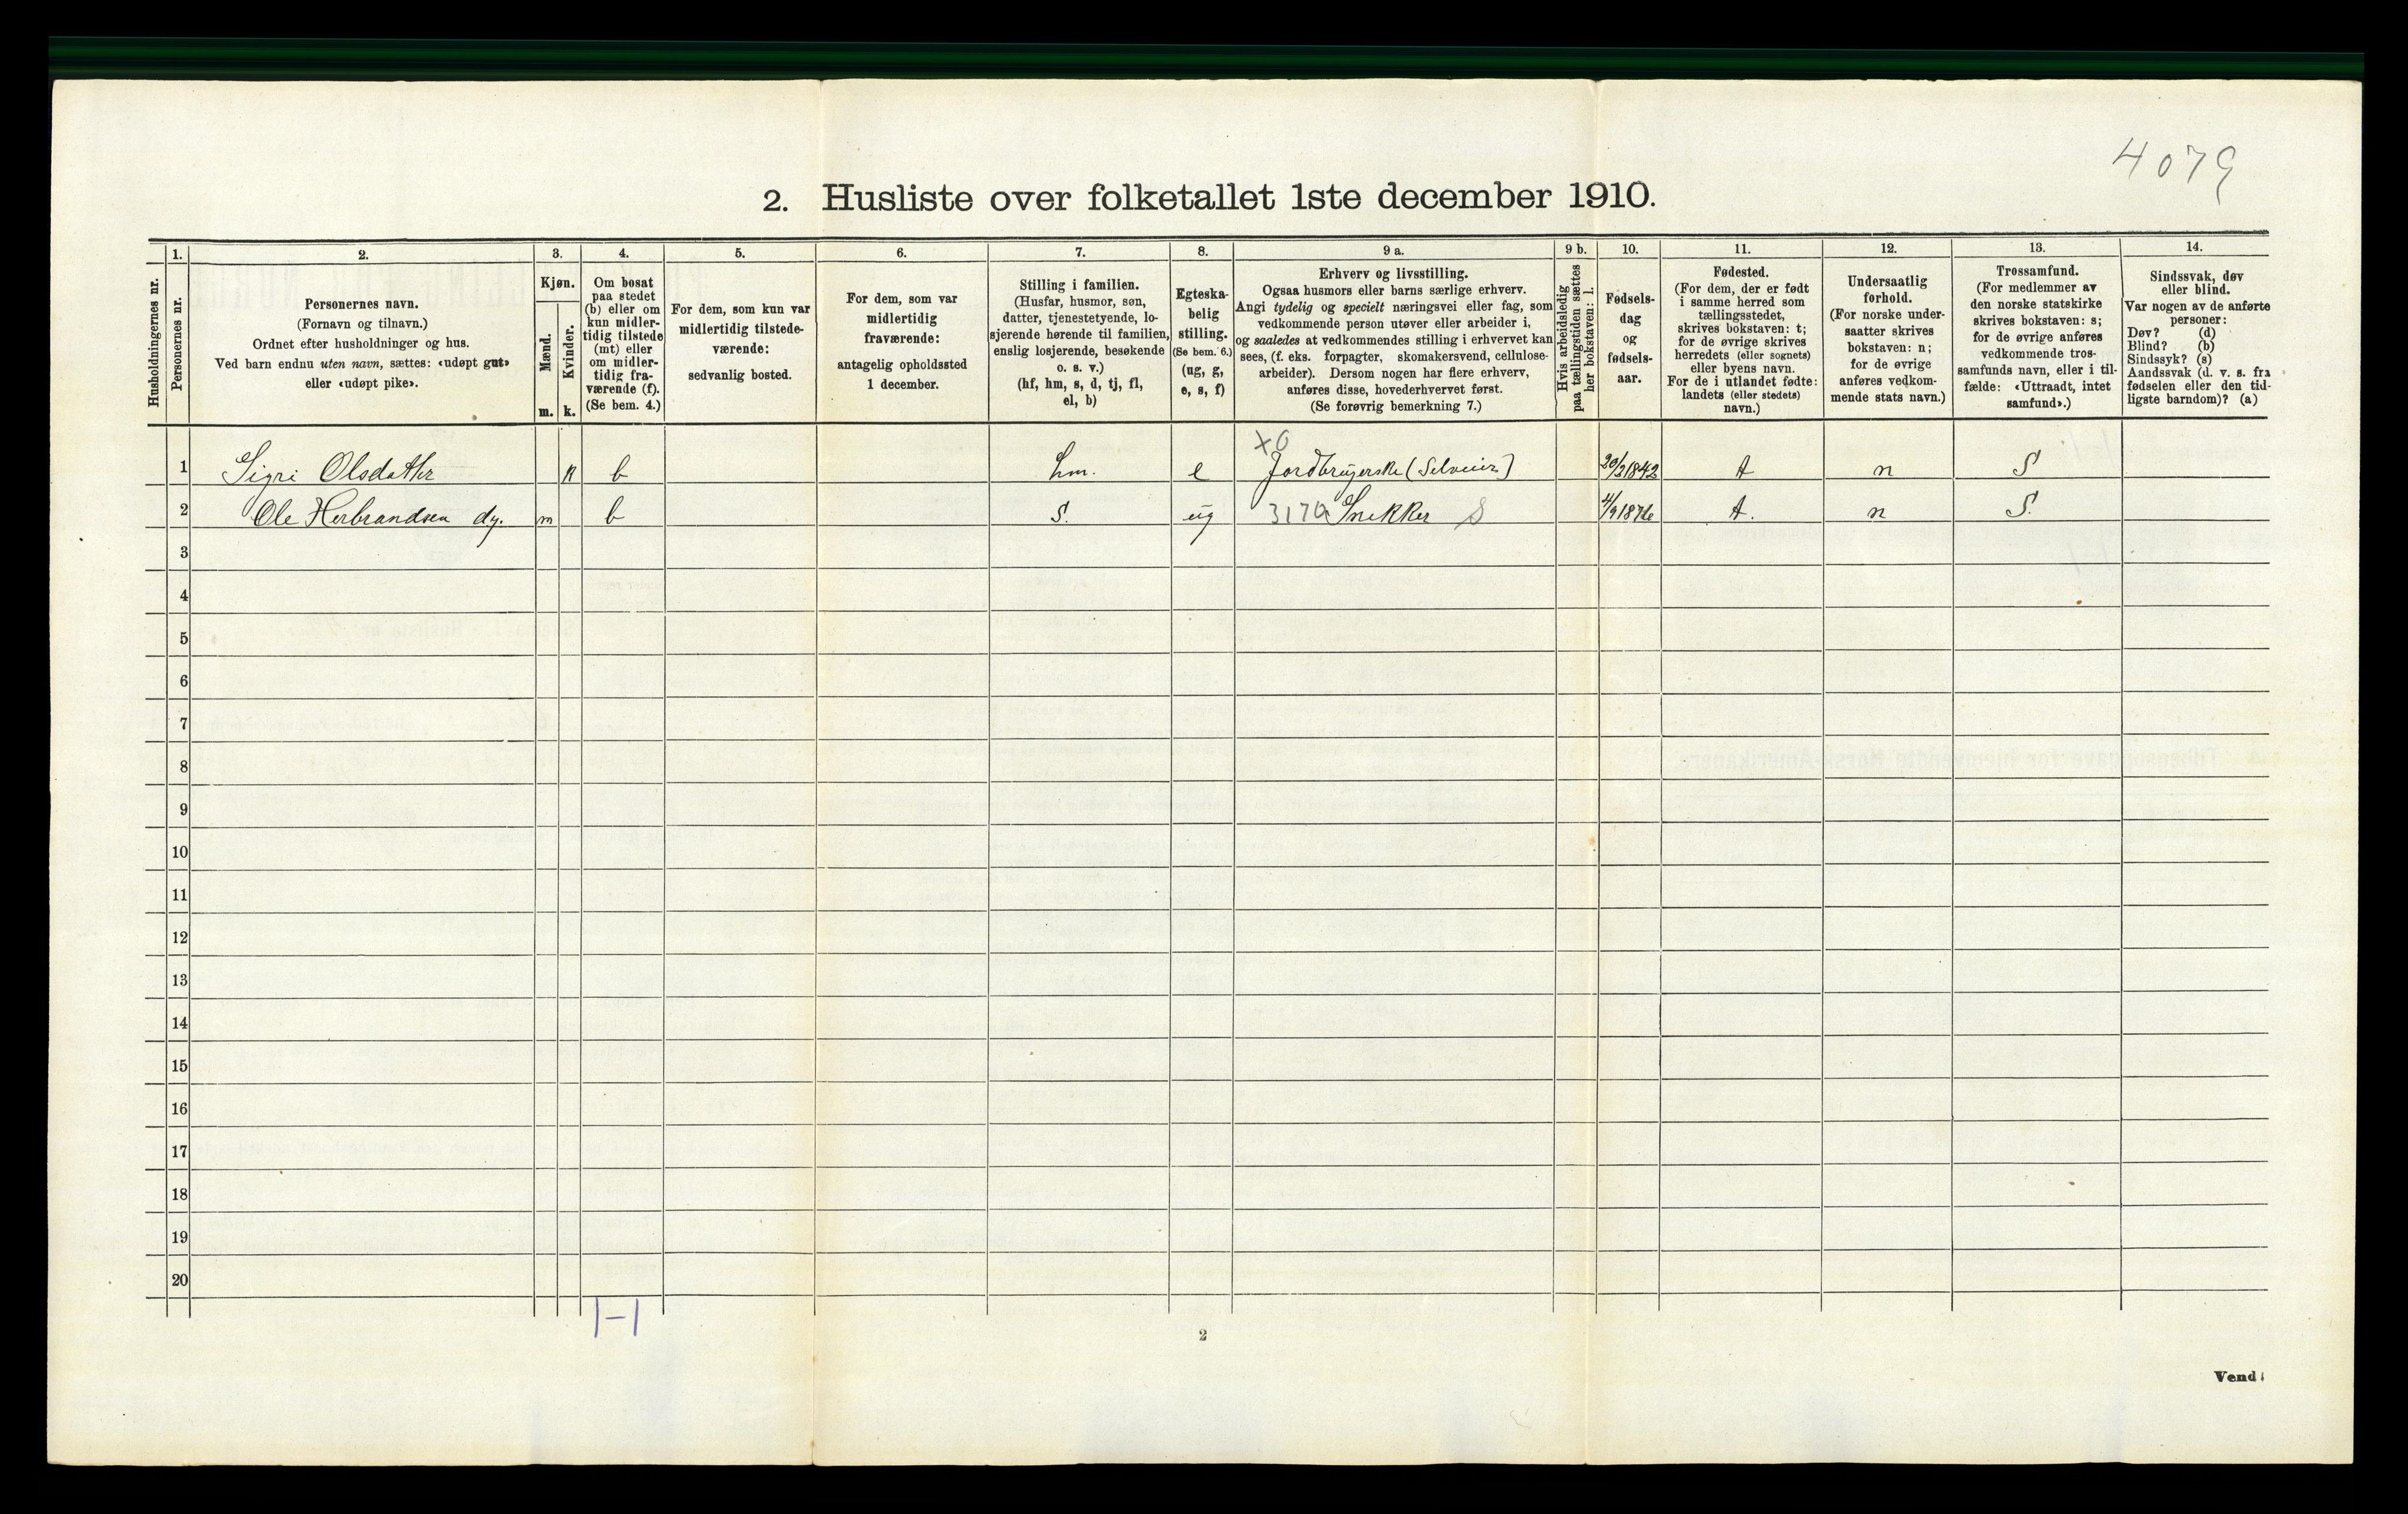 4079
2. Husliste over folketallet 1ste december 1910.
Husholdningernes nr.
1.
Personernes nr.
2.
Personernes navn.
(Fornavn og tilnavn.)
Ordnet efter husholdninger og hus.
Ved barn endnu uten navn, sættes: «udøpt gut»
eller «udøpt pike».
3.
Kjøn.
Mænd.
Kvinder.
m. k.
4.
Om bosat
paa stedet
(b) eller om
kun midler-
tidig tilstede
(mt) eller
om midler-
tidig fra-
værende (f).
(Se bem. 4.)
5.
For dem, som kun var
midlertidig tilstede-
værende:
sedvanlig bosted.
6.
For dem, som var
midlertidig
fraværende:
antagelig opholdssted
1 december.
7.
Stilling i familien.
(Husfar, husmor, søn,
datter, tjenestetyende, lo-
sjerende hørende til familien,
enslig losjerende, besøkende
o. s. v.)
(hf, hm, s, d, tj, fl,
el, b)
8.
Egteska-
belig
stilling.
(Se bem. 6.)
(ug, g,
e, s, f)
9 a.
Erhverv og livsstilling.
Ogsaa husmors eller barns særlige erhverv.
Angi tydelig og specielt næringsvei eller fag, som
vedkommende person utøver eller arbeider i,
og saaledes at vedkommendes stilling i erhvervet kan
sees, (f. eks. forpagter, skomakersvend, cellulose-
arbeider). Dersom nogen har flere erhverv,
anføres disse, hovederhvervet først.
(Se forøvrig bemerkning 7.)
9 b.
Hvis arbeidsledig
paa tællingstiden sættes
her bokstaven: l.
10.
Fødsels-
dag
og
fødsels-
aar.
11.
Fødested.
(For dem, der er født
i samme herred som
tællingsstedet,
skrives bokstaven: t;
for de øvrige skrives
herredets (eller sognets)
eller byens navn.
For de i utlandet fødte:
landets (eller stedets)
navn.)
12.
Undersaatlig
forhold.
(For norske under-
saatter skrives
bokstaven: n;
for de øvrige
anføres vedkom-
mende stats navn.)
13.
Trossamfund.
(For medlemmer av
den norske statskirke
skrives bokstaven: s;
for de øvrige anføres
vedkommende tros-
samfunds navn, eller i til-
fælde: «Uttraadt, intet
samfund».)
14.
Sindssvak, døv
eller blind.
Var nogen av de anførte
personer:
Døv? (d)
Blind? (b)
Sindssyk? (s)
Aandssvak (d. v. s. fra
fødselen eller den tid-
ligste barndom)? (a)
X0
1 Sigri Olsdatter k b hm. e Jordbrugerske (Selveier) 20/2 1842 t n S
2 Ole Herbrandsen dy. m b S. ug 3170 Snekker S 4/9 1876 t. n S.
3
4
5
6
7
8
9
10
11
12
13
14
15
16
17
18
19
20
1-1
2
Vend!